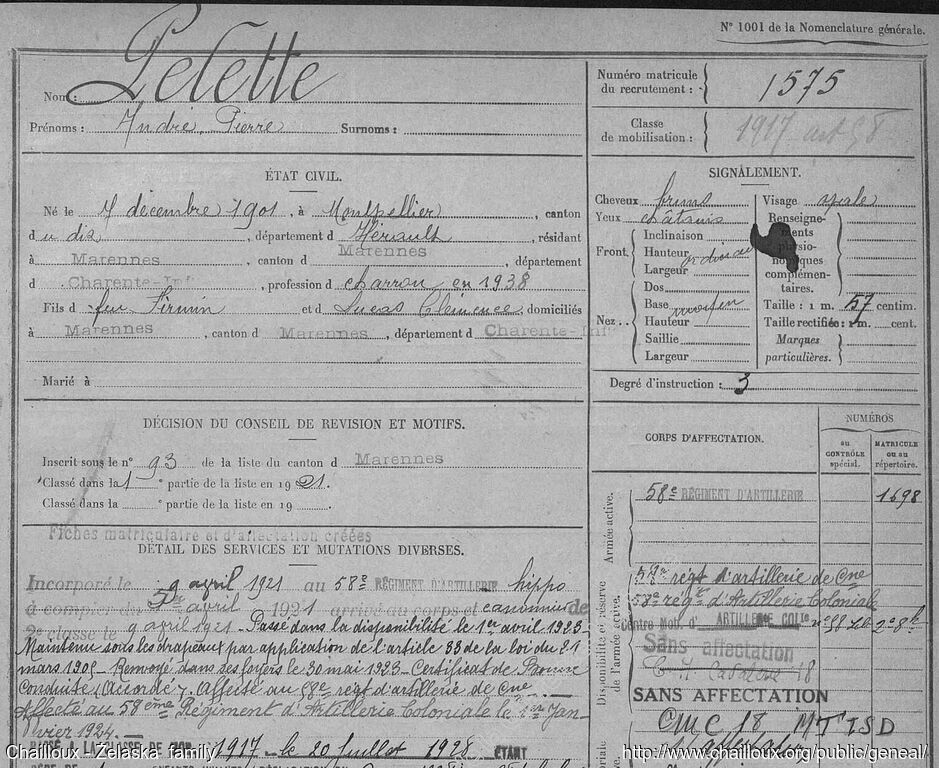 N° 1001 de la Nomenclature générale.
Nom : Pelette
Prénoms : André Pierre Surnoms :
Numéro matricule du recrutement : 1575
Classe de mobilisation : 1917
ÉTAT CIVIL.
Né le 7 décembre 1901, à Montpellier, canton
d u dis, département d Hérault, résidant
à Marennes, canton d Marennes, département
d Charente-Inf, profession d charron en 1938
Fils d feu Firmin et d Lucas Clémence domiciliés
à Marennes, canton d Marennes, département d Charente-Inf
Marié à
SIGNALEMENT.
Cheveux bruns Visage ovale
Yeux châtains
Front. Inclinaison
Hauteur ordinaire
Largeur
Nez. Dos
Base moyen
Hauteur
Saillie
Largeur
Renseignements physionomiques complémentaires.
Taille : 1 m. 57 centim.
Taille rectifiée : 1 m. cent.
Marques particulières.
Degré d'instruction : 3
DÉCISION DU CONSEIL DE REVISION ET MOTIFS.
Inscrit sous le n° 93 de la liste du canton d Marennes
Classé dans la 1e partie de la liste en 1921.
Classé dans la e partie de la liste en 19
Fiches matriculaire et d'affectation créées
DÉTAIL DES SERVICES ET MUTATIONS DIVERSES.
Incorporé le 9 avril 1921 au 58e RÉGIMENT D'ARTILLERIE hippo
à compter du avril 1921 arrivé au corps et canonnier de
2e classe le 9 avril 1921. Passé dans la disponibilité le 1er avril 1923.
Maintenu sous les drapeaux par application de l'article 33 de la loi du 21
mars 1905 - Renvoyé dans ses foyers le 30 mai 1923 - Certificat de Bonne
Conduite "Accordé". Affecté au 58e régt d'artillerie de Cne.
Affecté au 58ème Régiment d'Artillerie Coloniale le 1er Jan-
vier 1924.
1917 le 20 Juillet 1928 ÉTANT
CORPS D'AFFECTATION.
NUMÉROS
au CONTRÔLE spécial.
MATRICULE ou au répertoire.
Armée active.
58e RÉGIMENT D'ARTILLERIE 1698
Disponibilité et réserve de l'armée active.
régt d'artillerie de Cne
58e Régt d'Artillerie Coloniale
Centre Mob. d'ARTILLERIE COLle
Sans affectation
SANS AFFECTATION
CMC 18
Chailloux - Zelaska family
http://www.chailloux.org/public/geneal/